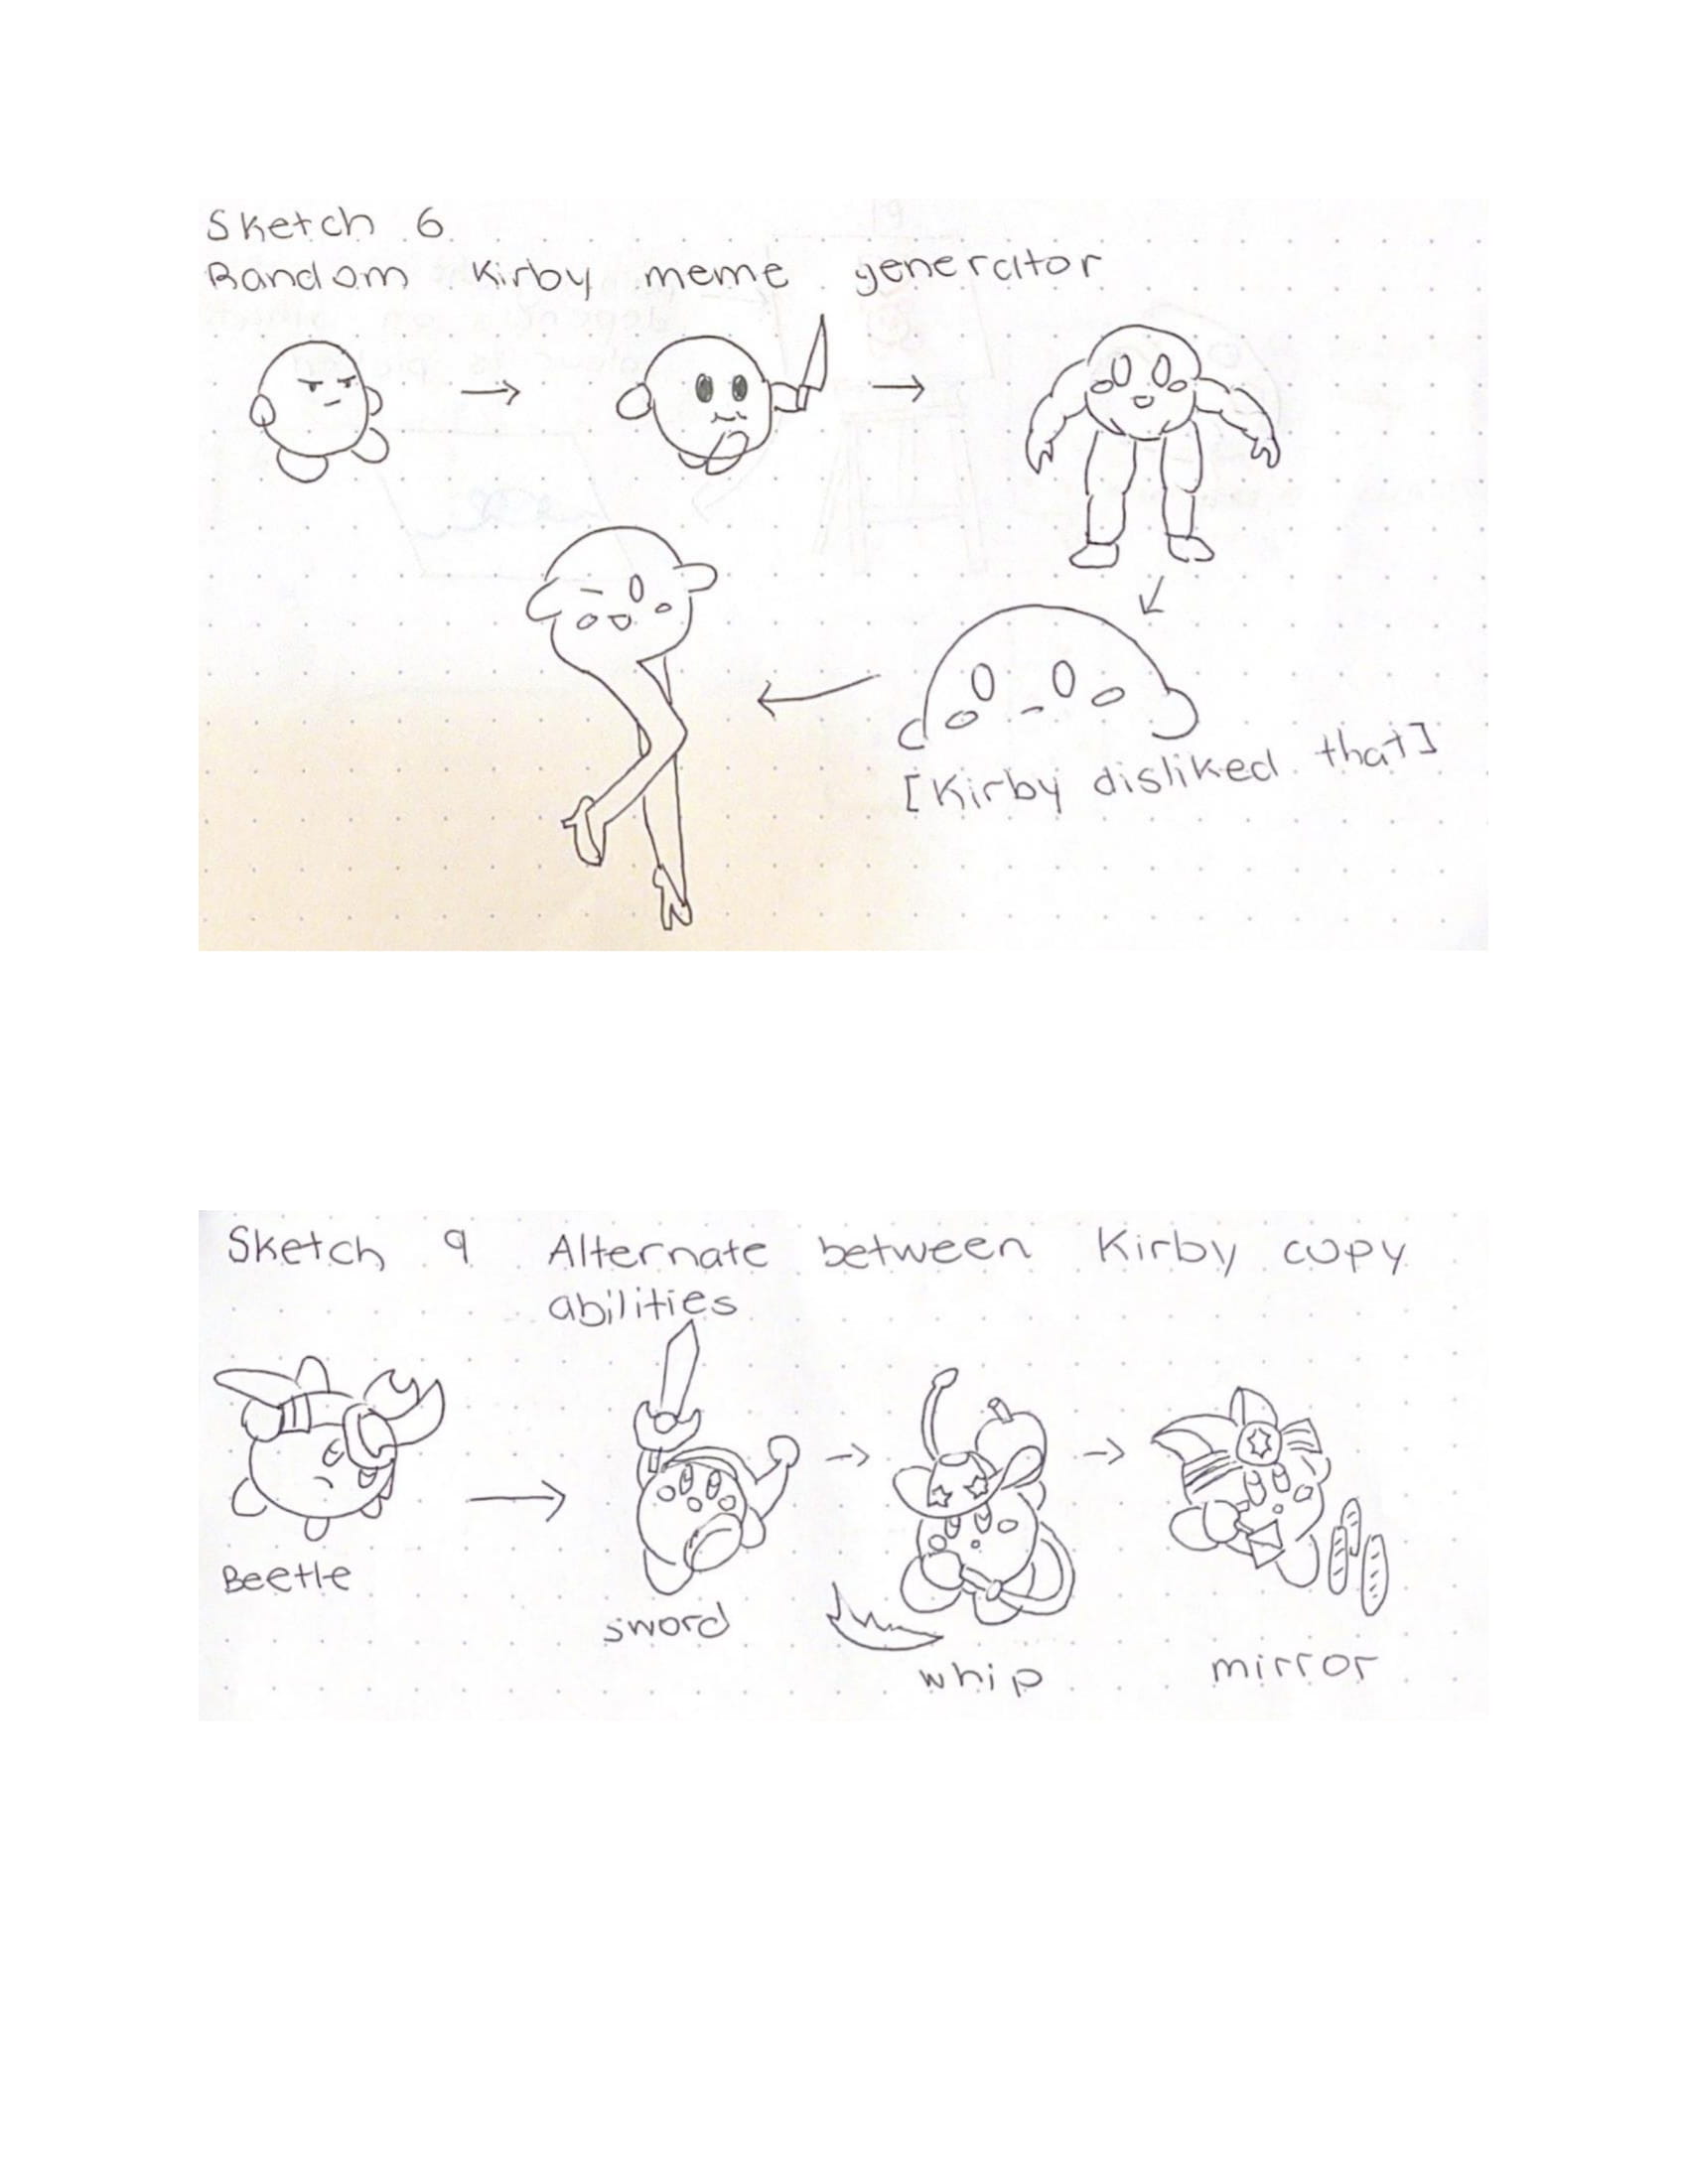 Sketch 6
Random Kirby meme generator
[Kirby disliked that]
Sketch 9 Alternate between Kirby copy
abilities
Beetle
sword
whip
mirror